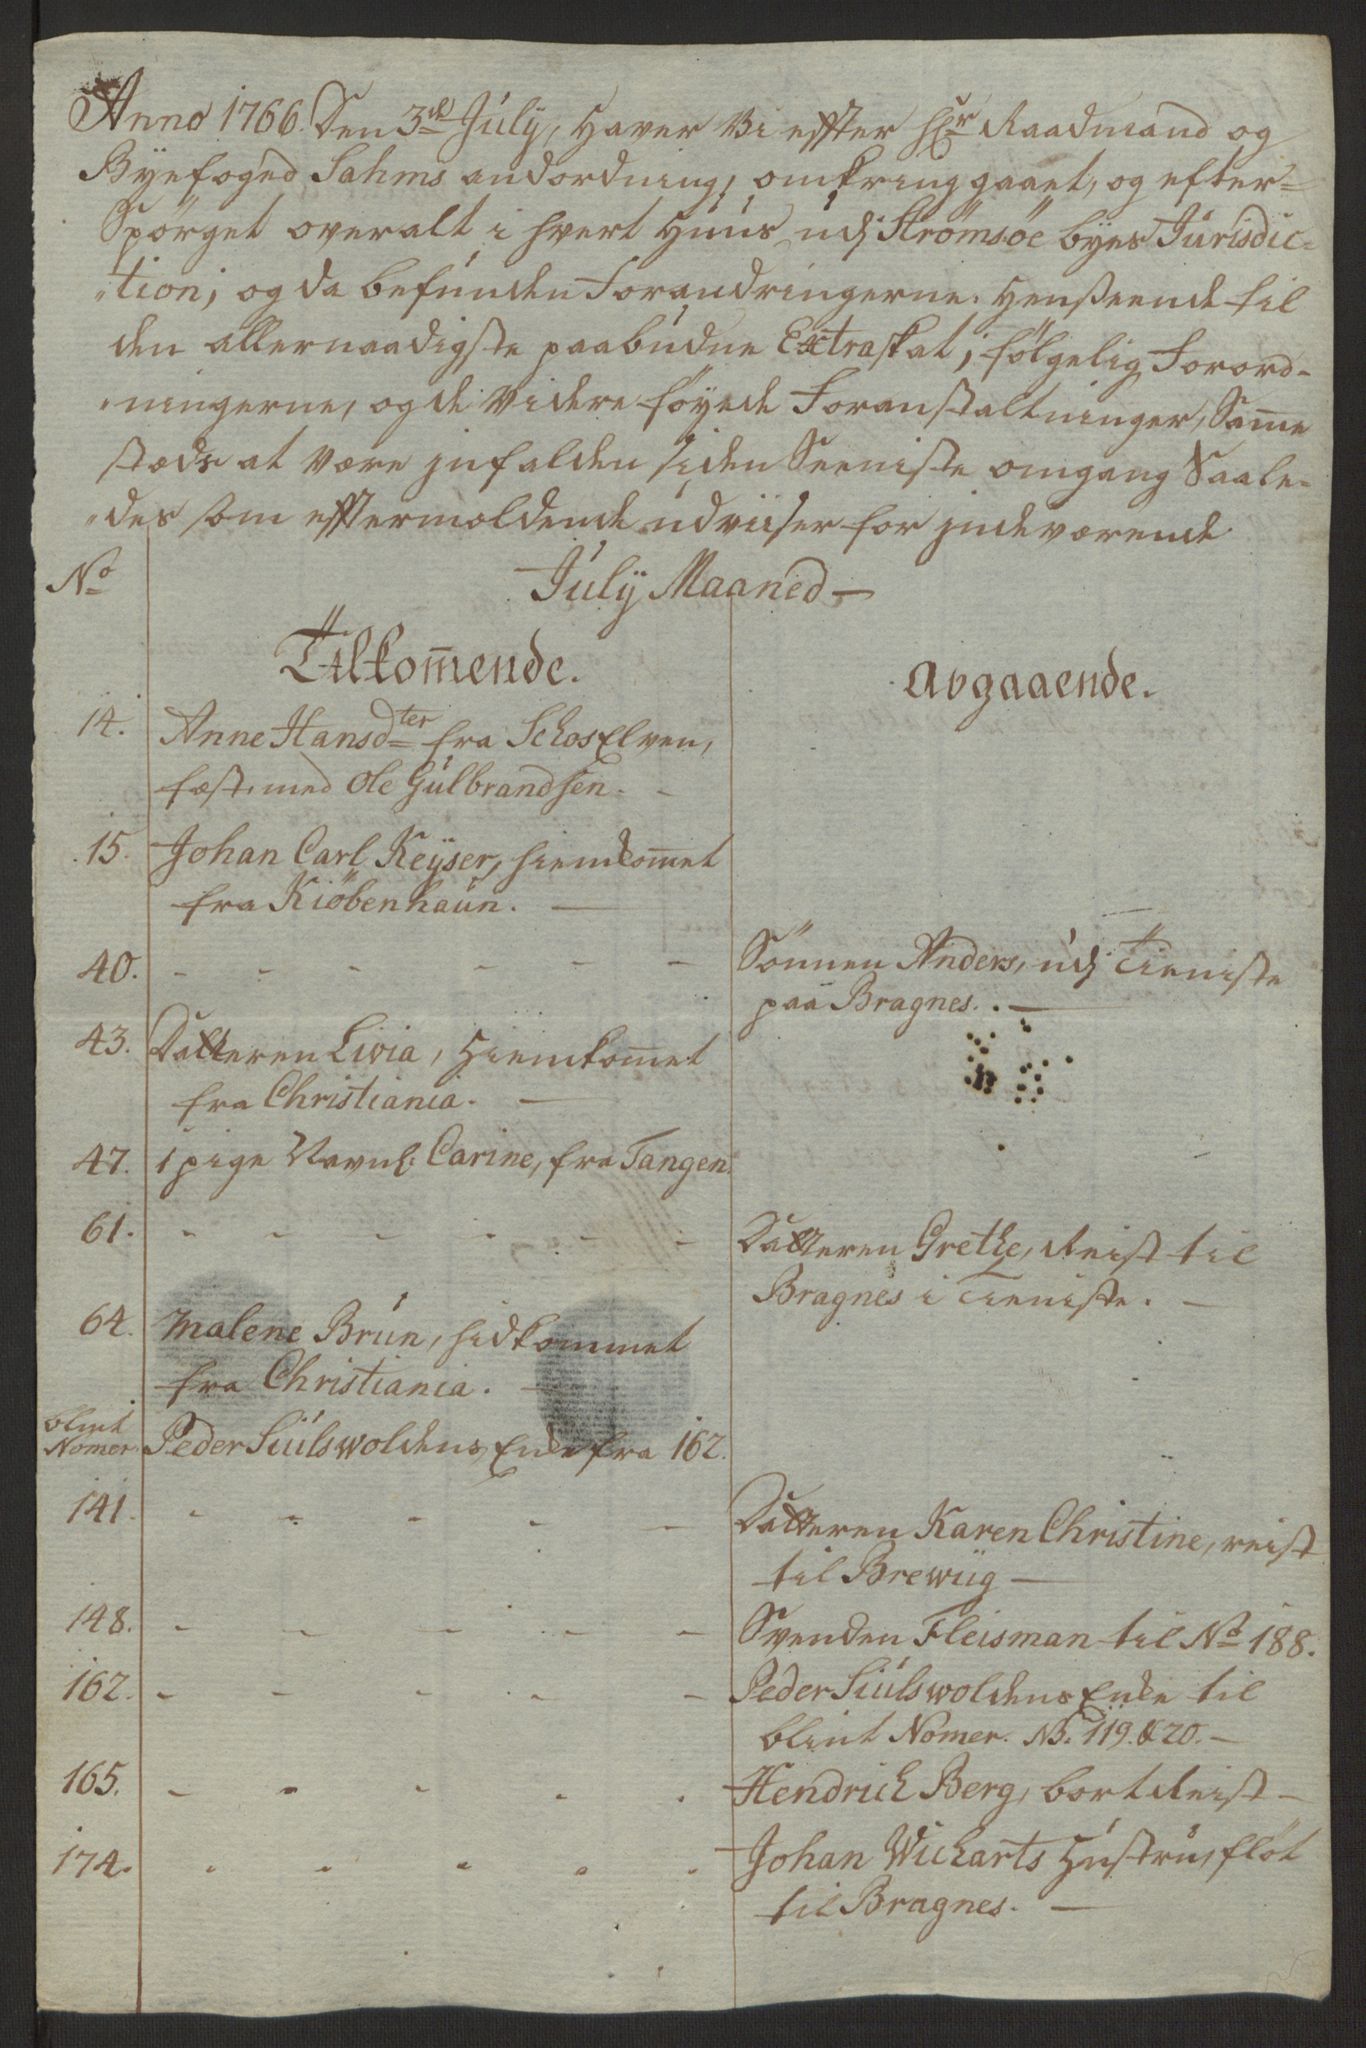 Anno 1766. Den 3de July, Haver Vi effter Hr Raadmand og
Byefoged Sahms andordning, omkring gaaet, og efter=
Spörget overalt i hvert Huus udj Strömsöe byes Jurisdic=
tion, og da befunden Forandringerne. Henseende til
den allernaadigste paabudne Extraskat, i fölgelig Forord-
ningerne, og de videre föyede Foranstaltninger, Samme
stæds at være jnfalden siden Seeniste omgang Saale=
des som efftermeldende udviiser for jndeværende
No
July Maaned
Tilkom̄ende.
Avgaaende.
14. Anne Hansdter fra SchosElven,
fæst. med Ole Gulbrandsen.
15. Johan Carl Keyser, hiemkom̄et
fra Kiöbenhaun.
40. - - - - - - Sönnen Anders, udj Tieniste
paa Bragnes.
43. Datteren Livia, Hiemkom̄et
fra Christiania.
47. 1 pige Navnl. Carine, fra Tangen.
61. - - - - - - Datteren Grethe, Reist til
Bragnes i Tieniste.
64. Malene Brun, hidkommet
fra Christiania.
blint
Nomer. Peder Siulswoldens Enke fra 162.
141. - - - - - Datteren Karen Christine, reist
til Brewiig
148. - - - - - Svenden Fleisman til No 188.
162. - - - - - Peder Siulswoldens Enke til
blint Nomer. N. 119. & 20.
165. - - - - - Hendrich Berg, bort Reist
174. - - - - - Johan Wicharts Hustru, flöt
til Bragnes.